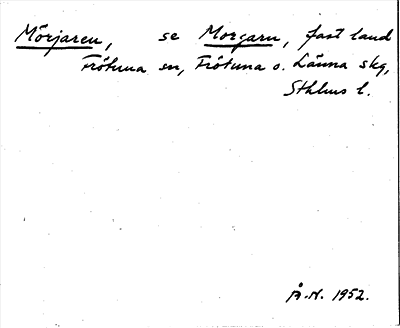 Mörjaren, se Morgarn, fast land
Frötuna sn, Frötuna o. Länna skg,
Sthlms l.
Å.N. 1952.